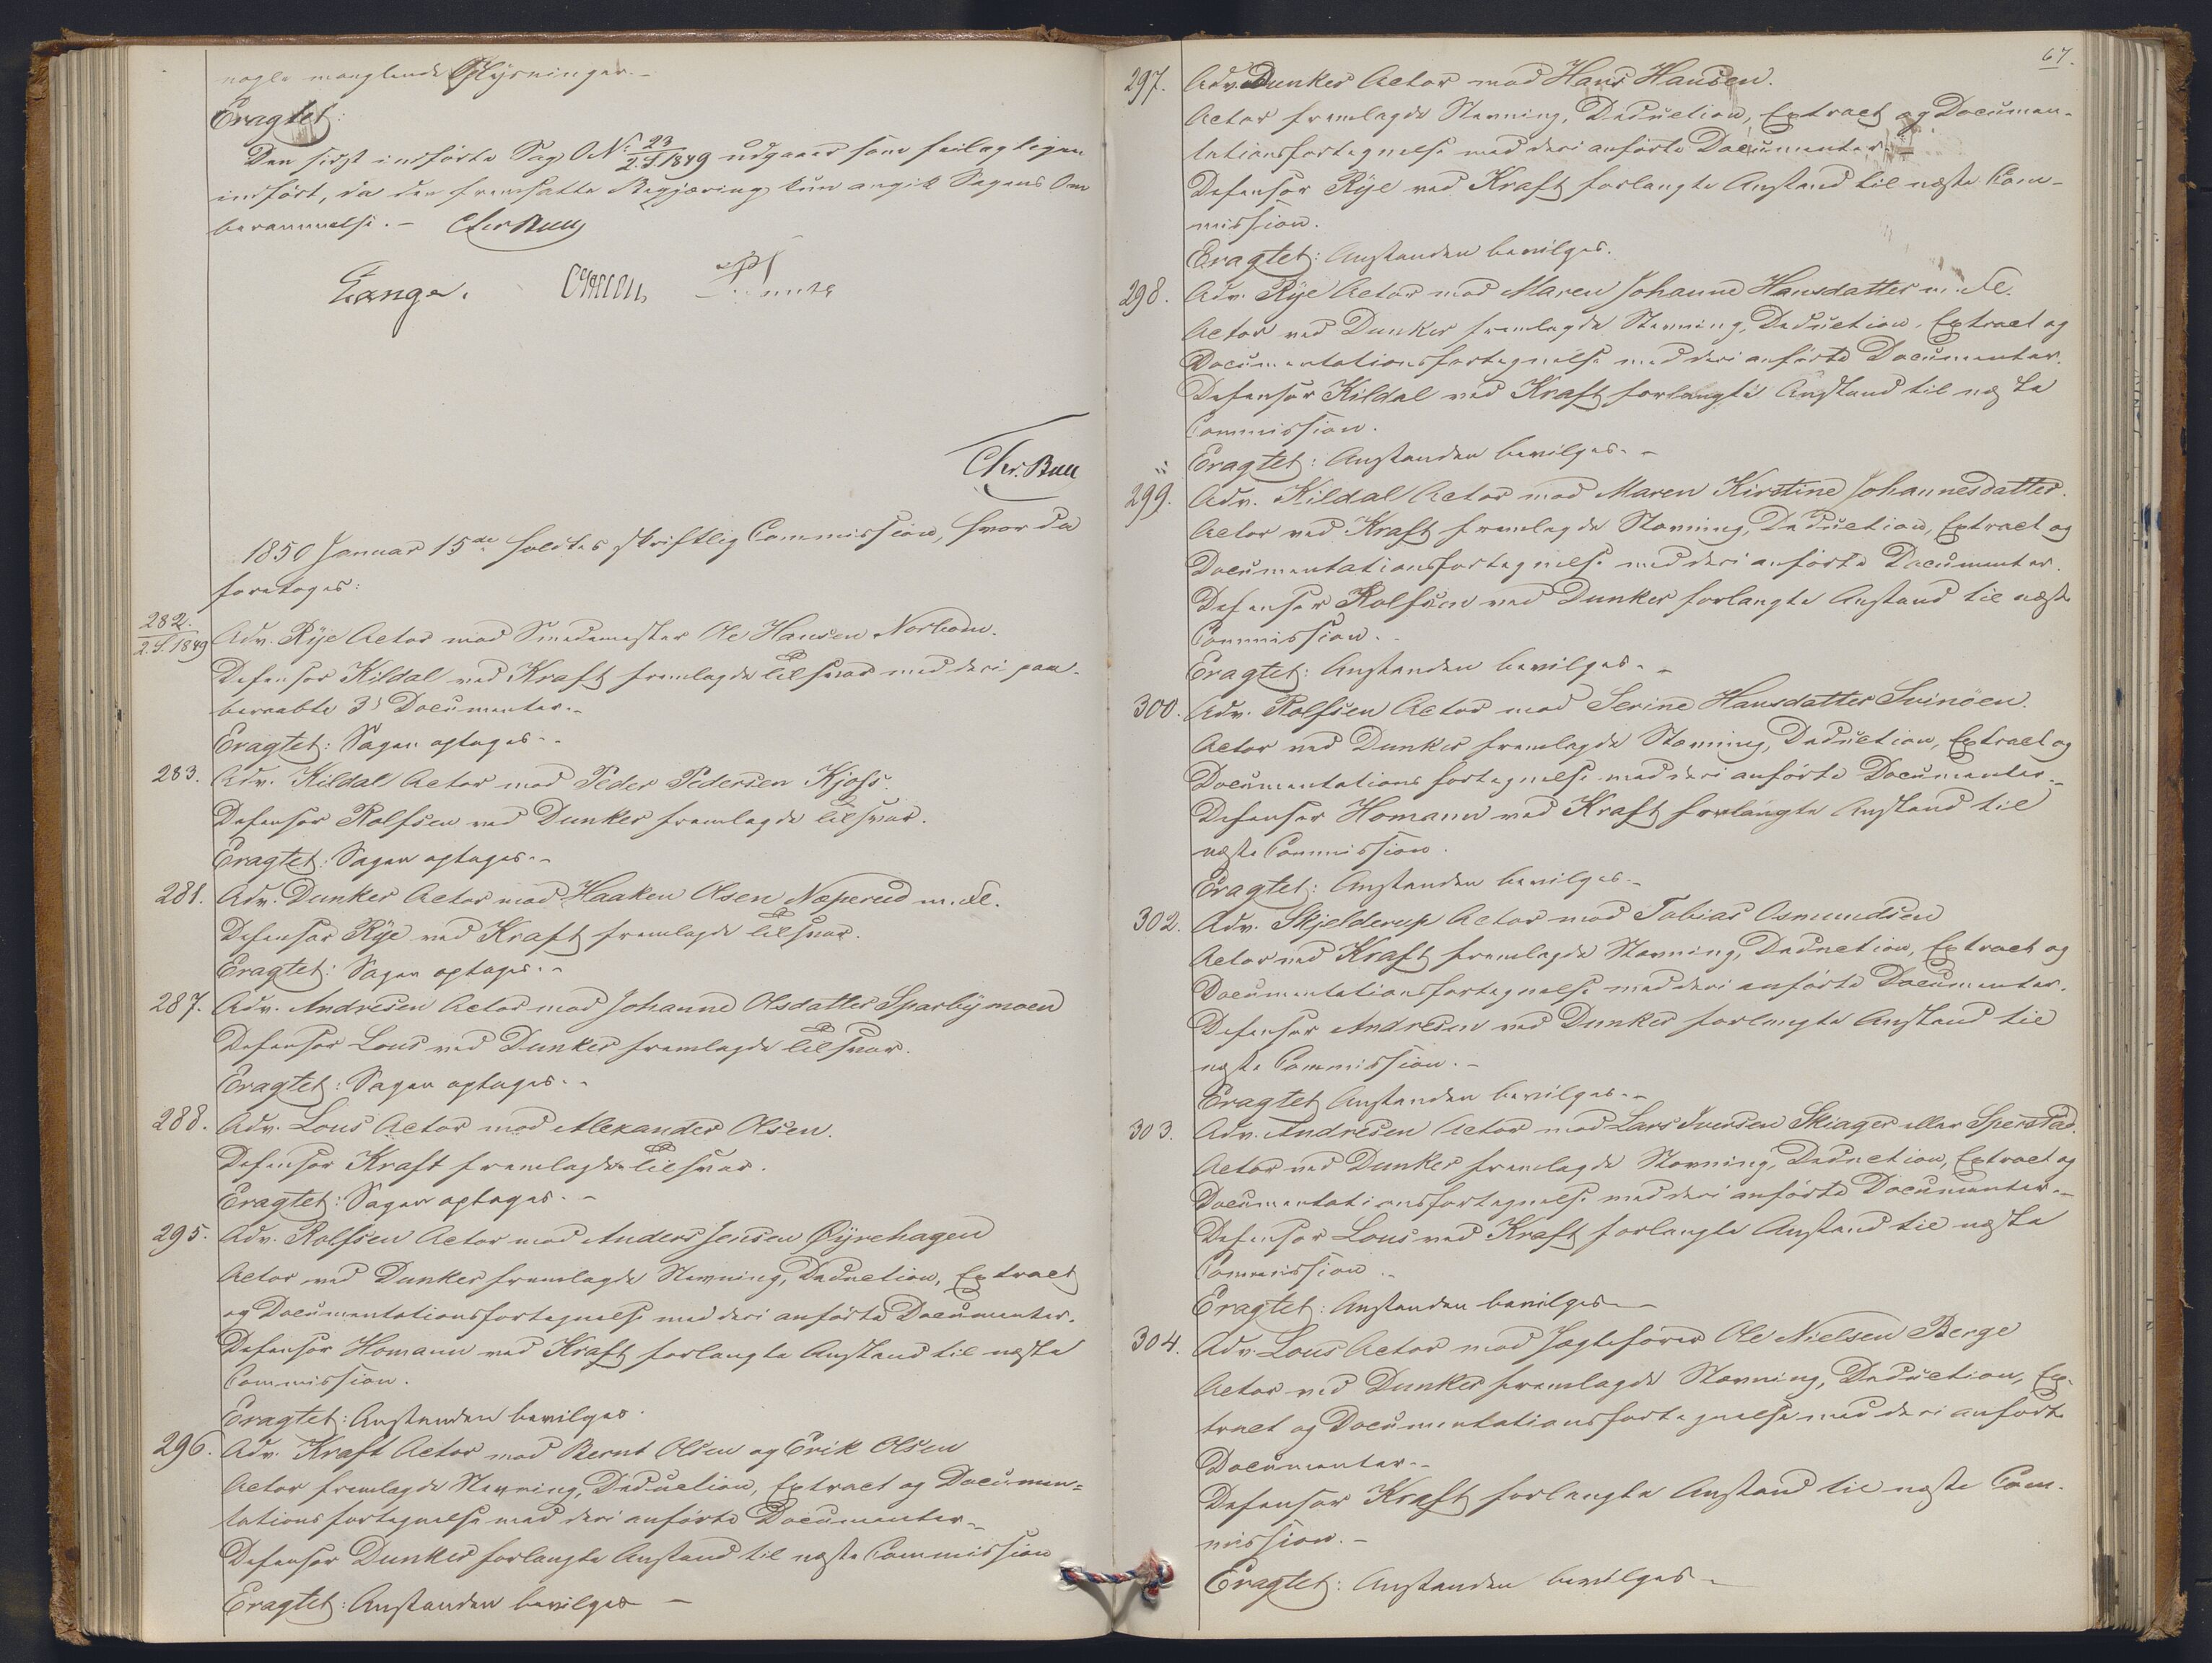 nogle manglende Oplysninger.-
Eragtet:
Den sidst indførte Sag N: 23/2.S.1849 udgaaer som feilagtigen
indført, da den fremsatte Begjæring kun angik Sagens Om
berammelse. - Chr Bull
Lange.
Chr. Bull
1850 Januar 15de holdtes skriftlig Commission, hvor da
foretoges:
282./2.S.1849 Adv. Rÿe Actor mod Smedemester Ole Hansen Norbom.
Defensor Kildal ved Kraft fremlagde Tilsvar med deri paa-
beraabte 3 Documenter.-
Eragtet: Sagen optages.-
283. Adv. Kildal Actor mod Peder Pedersen Kjoss.
Defensor Rolfsen ved Dunker fremlagde Tilsvar.
Eragtet: Sagen optages.-
281. Adv. Dunker Actor mod Haaken Olsen Næperud m. Fl.
Defensor Rÿe ved Kraft fremlagde Tilsvar.
Eragtet: Sagen optages.-
287. Adv. Andresen Actor mod Johanne Olsdatter Sparbÿmoen
Defensor Lous ved Dunker fremlagde Tilsvar.
Eragtet: Sagen optages.-
288. Adv. Lous Actor mod Alexander Olsen.
Defensor Kraft fremlagde Tilsvar.
Eragtet: Sagen optages.-
295. Adv. Rolfsen Actor mod Anders Jensen Øÿrehagen
Actor ved Dunker fremlagde Stevning, Deduction, Extract
og Documentationsfortegnelse med deri anførte Documenter.
Defensor Homann ved Kraft forlangte Anstand til næste
Commission.
Eragtet: Anstanden bevilges.
296. Adv. Kraft Actor mod Bernt Olsen og Erik Olsen
Actor fremlagde Stevning, Deduction, Extract og Documen=
tationsfortegnelse med deri anførte Documenter.-
Defensor Dunker forlangte Anstand til næste Commission
Eragtet: Anstanden bevilges -
67.
297. Adv. Dunker Actor mod Hans Hansen.
Actor fremlagde Stevning, Deduction, Extract og Documen-
tationsfortegnelse med deri anførte Documenter.-
Defensor Rÿe ved Kraft forlangte Anstand til næste Com-
mission.
Eragtet: Anstanden bevilges.
298. Adv. Rÿe Actor mod Maren Johanne Hansdatter m. Fl.
Actor ved Dunker fremlagde Stevning, Deduction, Extract og
Documentationsfortegnelse med deri anførte Documenter.
Defensor Kildal ved Kraft forlangte Anstand til næste
Commission.
Eragtet: Anstanden bevilges.-
299. Adv. Kildal Actor mod Maren Kirstine Johannesdatter.
Actor ved Kraft fremlagde Stevning, Deduction, Extract og
Documentationsfortegnelse med deri anførte Documenter.
Defensor Rolfsen ved Dunker forlangte Anstand til næste
Commission.-
Eragtet: Anstanden bevilges.-
300. Adv. Rolfsen Actor mod Serine Hansdatter Svinöen.
Actor ved Dunker fremlagde Stevning, Deduction, Extract og
Documentationsfortegnelse med deri anførte Documenter.-
Defensor Homann ved Kraft forlangte Anstand til
næste Commission.
Eragtet: Anstanden bevilges.-
302. Adv. Skjelderup Actor mod Tobias Osmundsen
Actor ved Kraft fremlagde Stevning, Deduction, Extract og
Documentationsfortegnelse med deri anførte Documenter.
Defensor Andresen ved Dunker forlangte Anstand til
næste Commission.-
Eragtet Anstanden bevilges.-
303. Adv. Andresen Actor mod Lars Iversen Skiager eller Sperstad.
Actor ved Dunker fremlagde Stevning, Deduction, Extract og
Documentationsfortegnelse med deri anførte Documenter.-
Defensor Lous ved Kraft forlangte Anstand til næste
Commission.-
Eragtet: Anstanden bevilges.-
304. Adv. Lous Actor mod Jagtefører Ole Nielsen Berge
Actor ved Dunker fremlagde Stevning, Deduction, Ex-
tract og Documentationsfortegnelse med deri anførte
Documenter.-
Defensor Kraft forlangte Anstand til næste Com-
mission.-
Eragtet: Anstanden bevilges.-